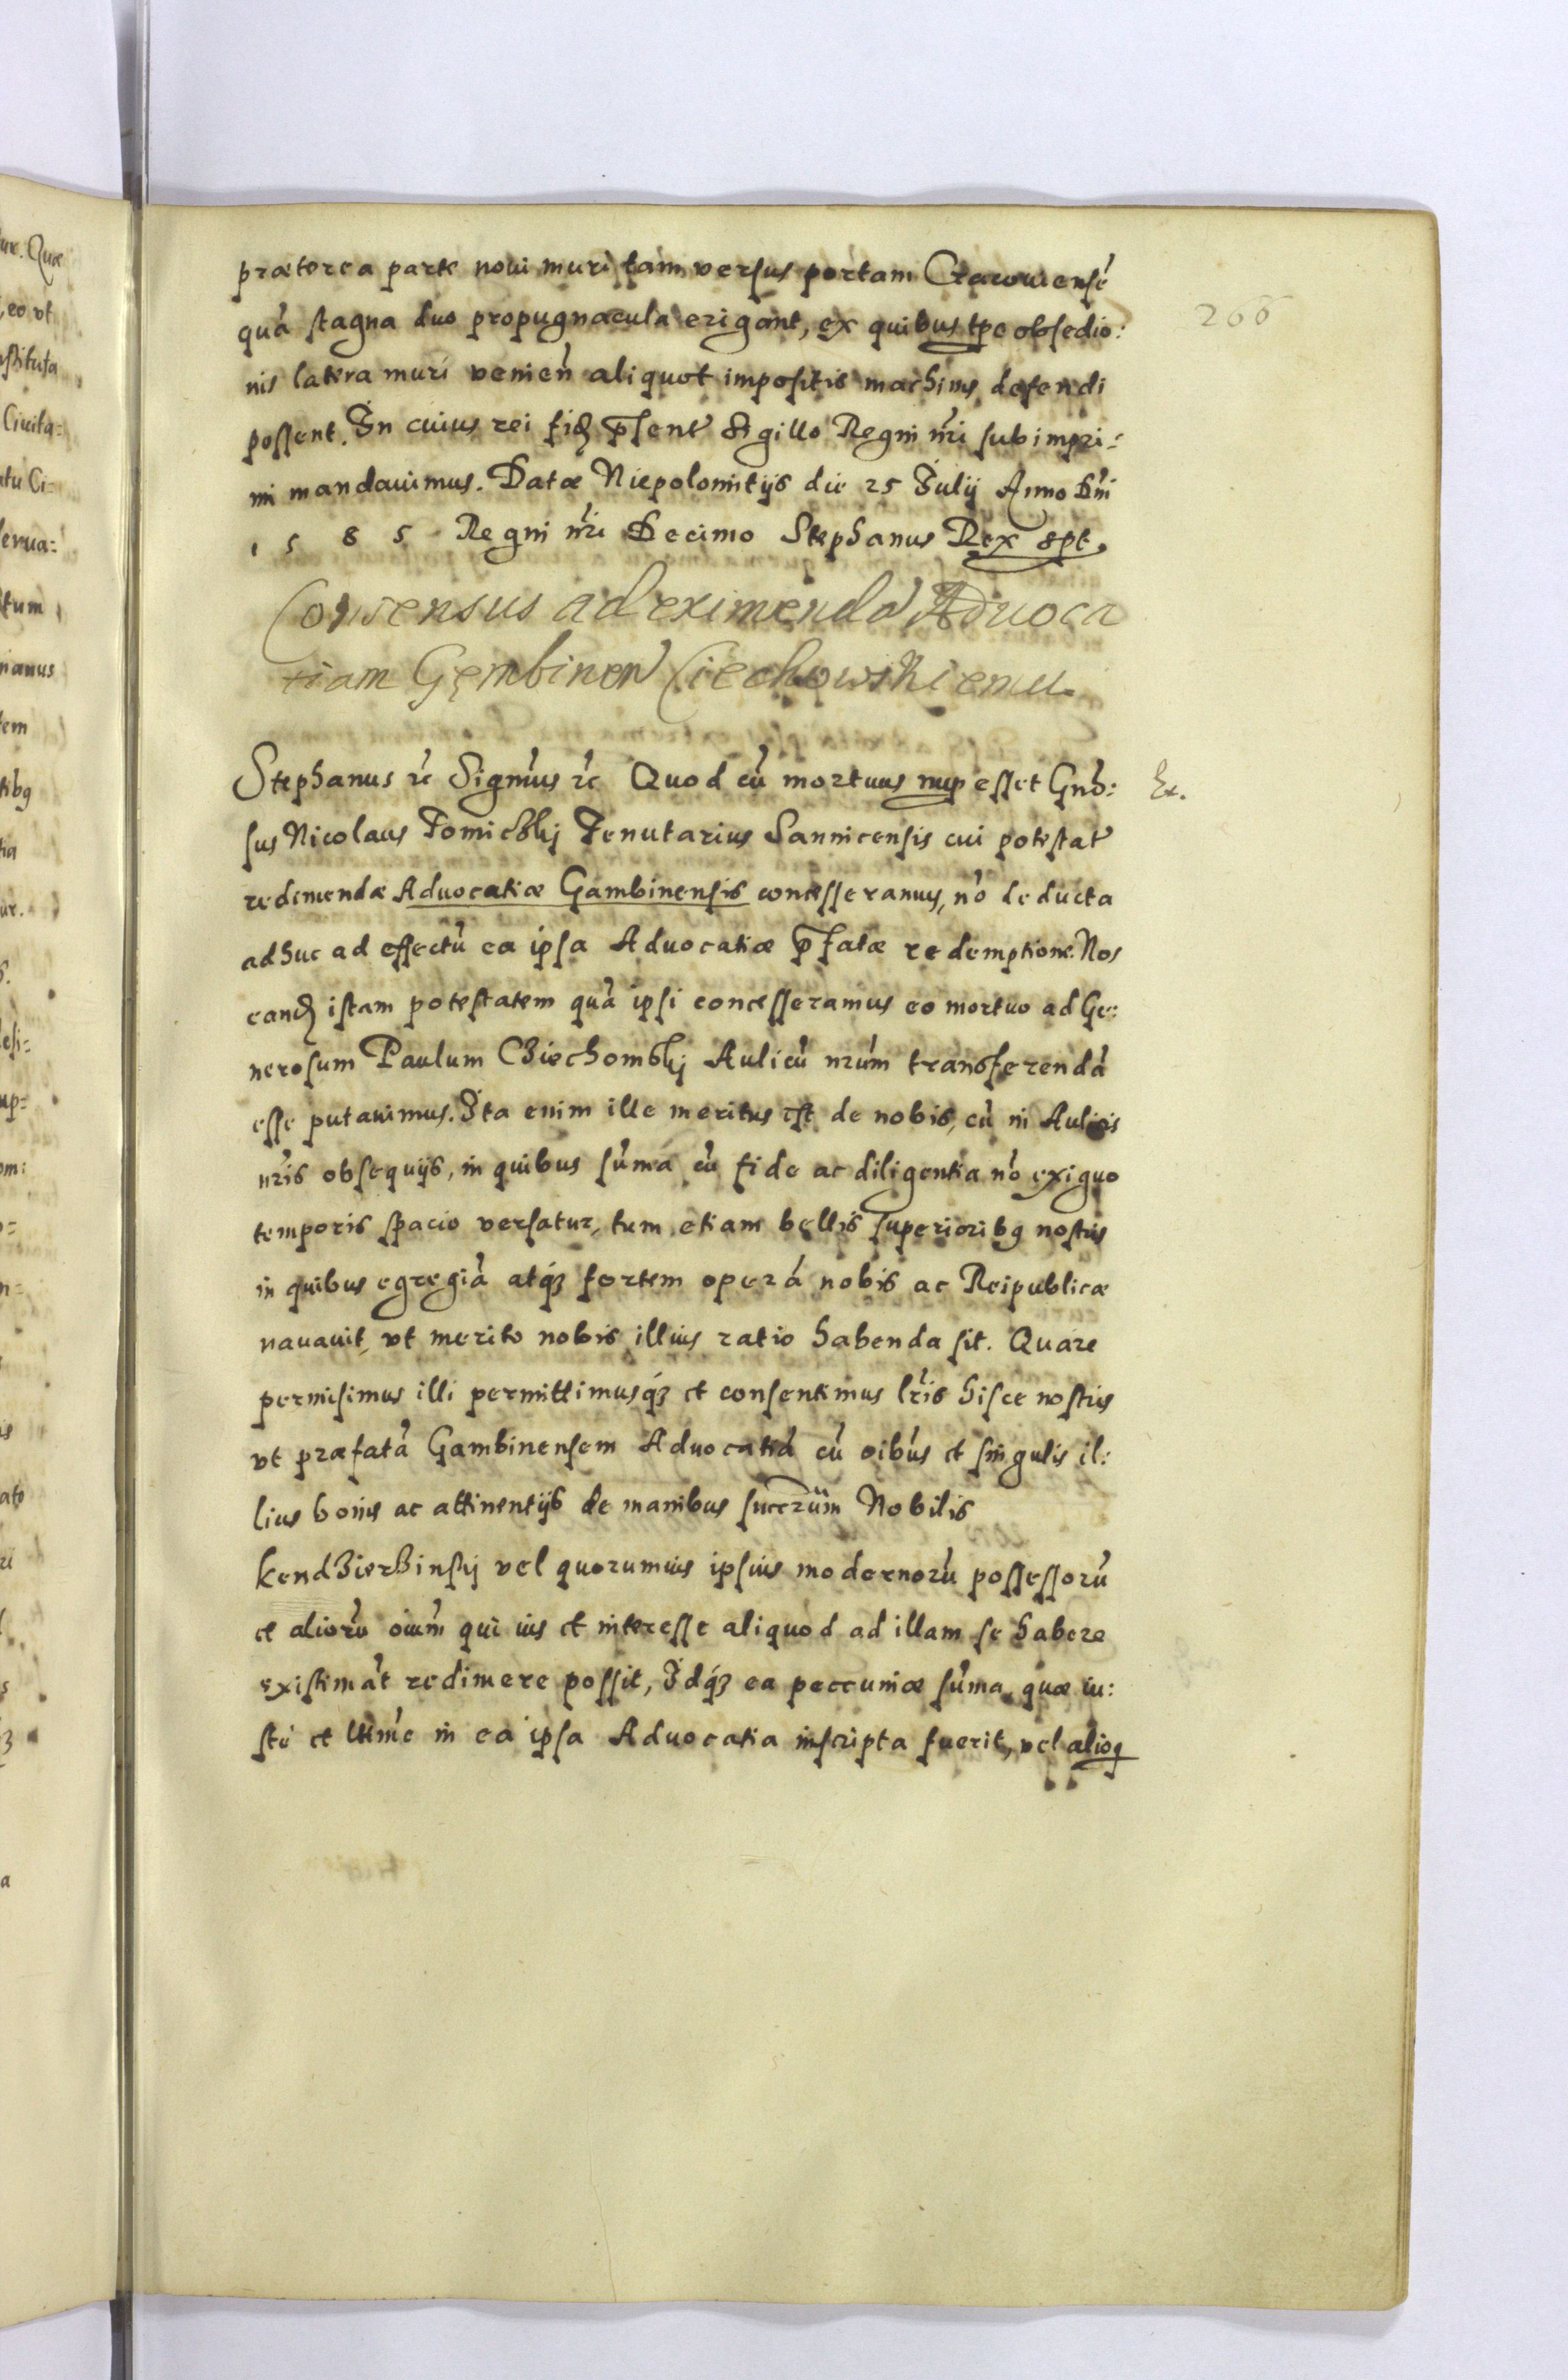 præterea parte noui muri tam versus portam Cracouiensē
quā stagna duo propugnacula erigant, ex quibus tpe obsedio:
nis latera muri venien̄ aliquot impositis machinis defendi
possent. In cuius rei fidē pn̄t Sigillo Regni nr̄i subimpri:
mi mandauimus. Datæ Niepolomitijs die 25 Julij Anno Dn̄i
1585 Regni nr̄i Decimo Stephanus Rex spt.
266
Consensus ad eximendā Aduoca
tiam Gęmbinen Ciechowskiemu
Stephanus rc̄ Signm̄us rc̄ Quod cū mortuus nup esset Gn̄o:
Ex.
sus Nicolaus Tomicskj Tenutarius Sannicensis cui potestat̄
redimendæ Aduocatiæ Gambinensis concesseramus, nō deducta
adhuc ad effectū ea ipsa Aduocatiæ p̄fatæ redemptione. Nos
eandē istam potestatem quā ipsi concesseramus eo mortuo ad Ge:
nerosum Paulum Cziechomskj Aulicū nr̄um transferendā
esse putauimus. Ita enim ille meritus est de nobis, cū in Aulicis
nr̄is obsequijs, in quibus sūma cū fide ac diligentia nō exiguo
temporis spacio versatur, tum etiam bellis superiorib9 nostris
in quibus egregiā atq́3 fortem operā nobis ac Reipublicæ
nauauit, vt merito nobis illius ratio habenda sit. Quare
permisimus illi permittimusq́3 et consentimus lr̄is hisce nostris
vt præfatā Gambinensem Aduocatiā cū oib̄us et singulis il:
lius bonis ac attinentijs de manibus succr̄um Nobilis
KendZierZinskj vel quorumuis ipsius modernorū possessorū
et aliorū oiūm qui ius et interesse aliquod ad illam se habere
existimāt redimere possit, Idq́3 ea peccuniæ sūma, quæ iu:
stè et ltimē in ea ipsa Aduocatia inscripta fuerit, vel alioq